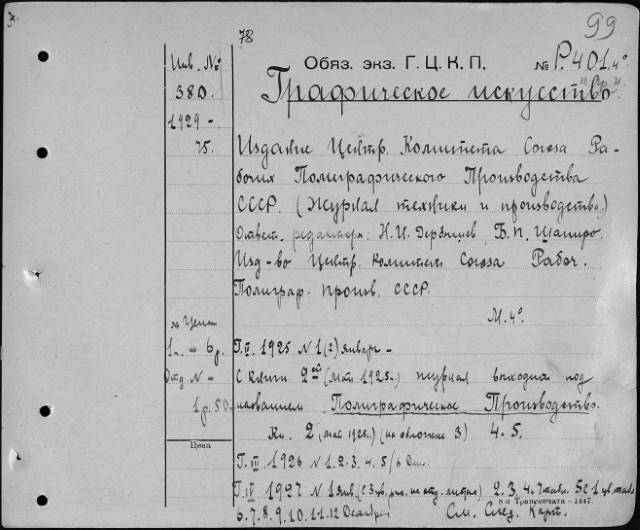 78
99
Инв. №
Обяз. экз. Г. Ц. К. П.
№ Р.401.4°
380
Графическое искусство
1929 -
75.
Издание Центр. Комитета Союза Ра-
бочих Полиграфического Производства
СССР. (Журнал техники и производства.)
Ответ. редакторы: Н.И. Дербышев, Б.П. Шапиро.
Изд-во Центр. Комитет Союза Рабоч.
Полиграф. произв. СССР.
М. 4°.
№ Цена
1 - 6 р.
Г. II. 1925 N 1 (2) январь -
Отд. N -
1 р. 50
С книги 2ой (Май 1925.) журнал выходил под
названием Полиграфическое Производство.
Цена
Кн. 2 (май 1925.) (на обложке 3) 4. 5.
Г. III 1926 N 1. 2. 3. 4. 5/6 Дек.
Г. IV 1927 N 1 янв. 2. 3. 4.
6. 7. 8. 9. 10. 11. 12 Декабрь
См. След. Карт.
Транспечати - 1447